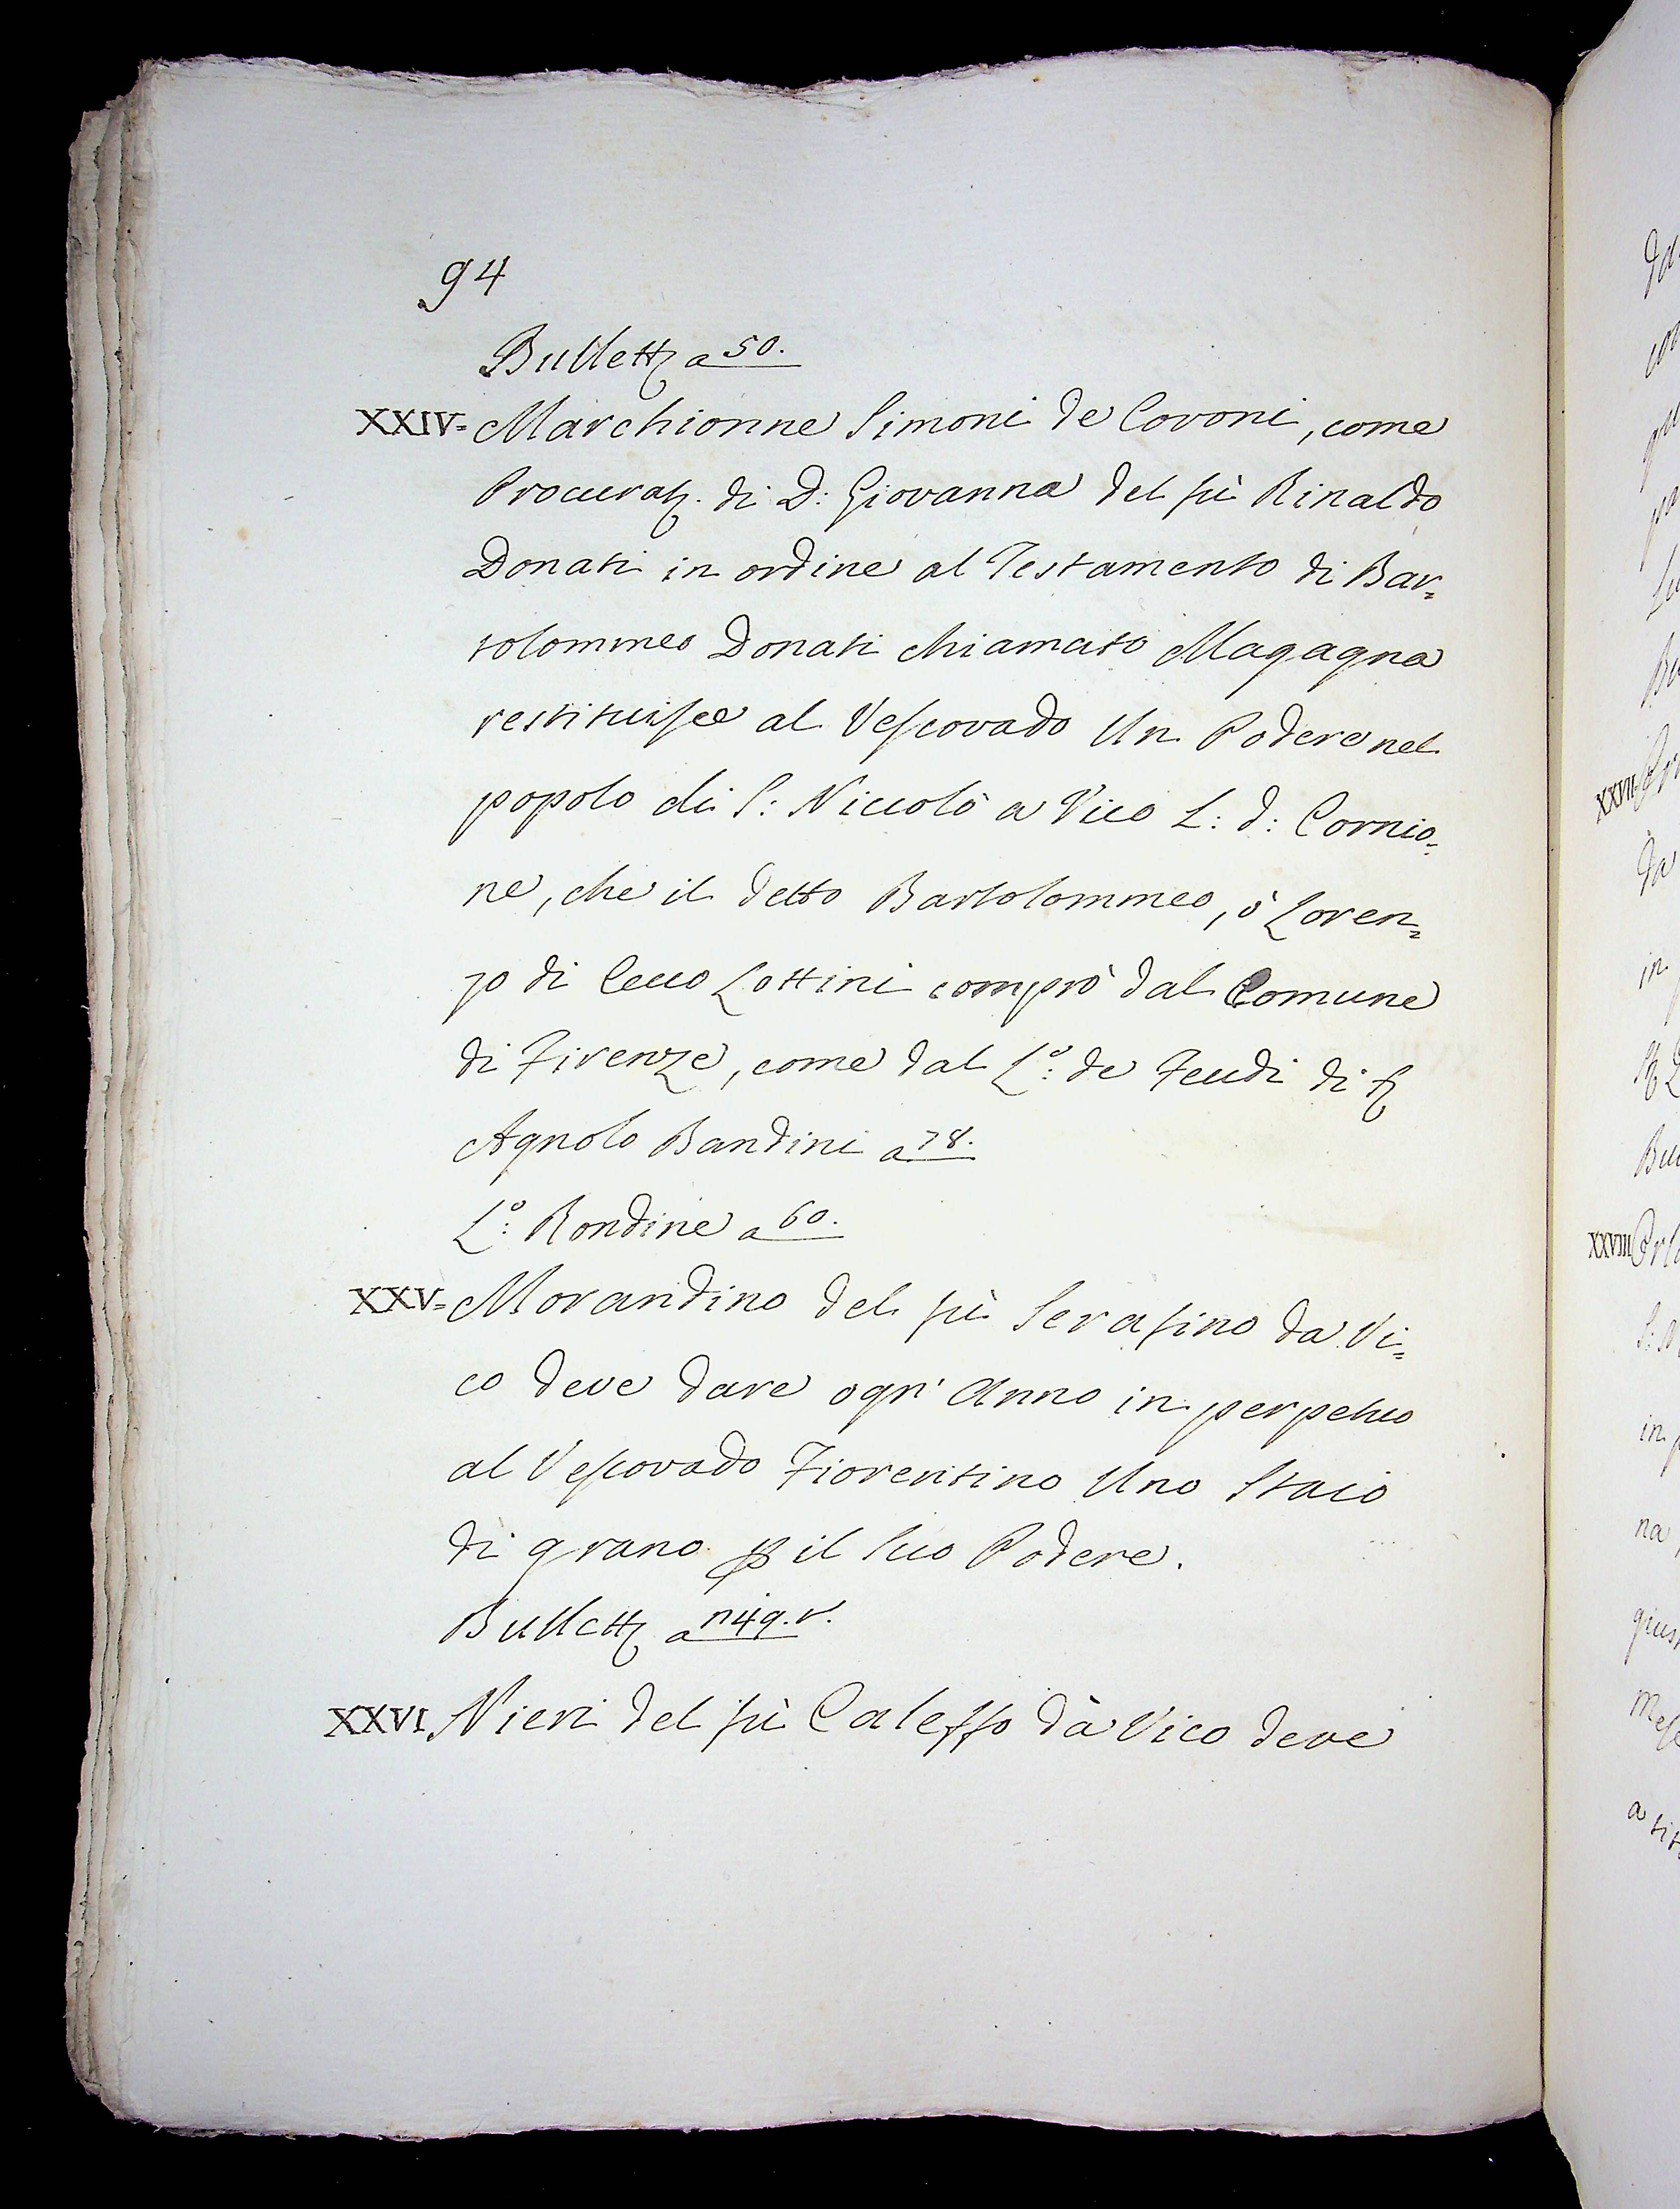 94
Bullett a 50.
XXIV= Marchionne Simoni de Covoni, come
Procurat. di D: Giovanna del fù Rinaldo
Donati in ordine al Testamento di Bar=
tolommeo Donati chiamato Magagna
restituisce al Vescovado Un Podere nel
popolo di S: Niccolò a Vico L: d: Cornio=
ne, che il detto Bartolommeo, ò Loren=
zo di Cecco Lottini comprò dal Comune
di Firenze, come dal L.º: de Feudi di
Agnolo Bandini a 78.
L.º: Rondine a 60.
XXV= Morandino del fù Serafino da Vi=
co deve dare ogn' Anno in perpetuo
al Vescovado Fiorentino Uno Staio
di grano p il suo Podere.
Bullett a n49.v.
XXVI. Nieri del fù Caleffo dà Vico deve